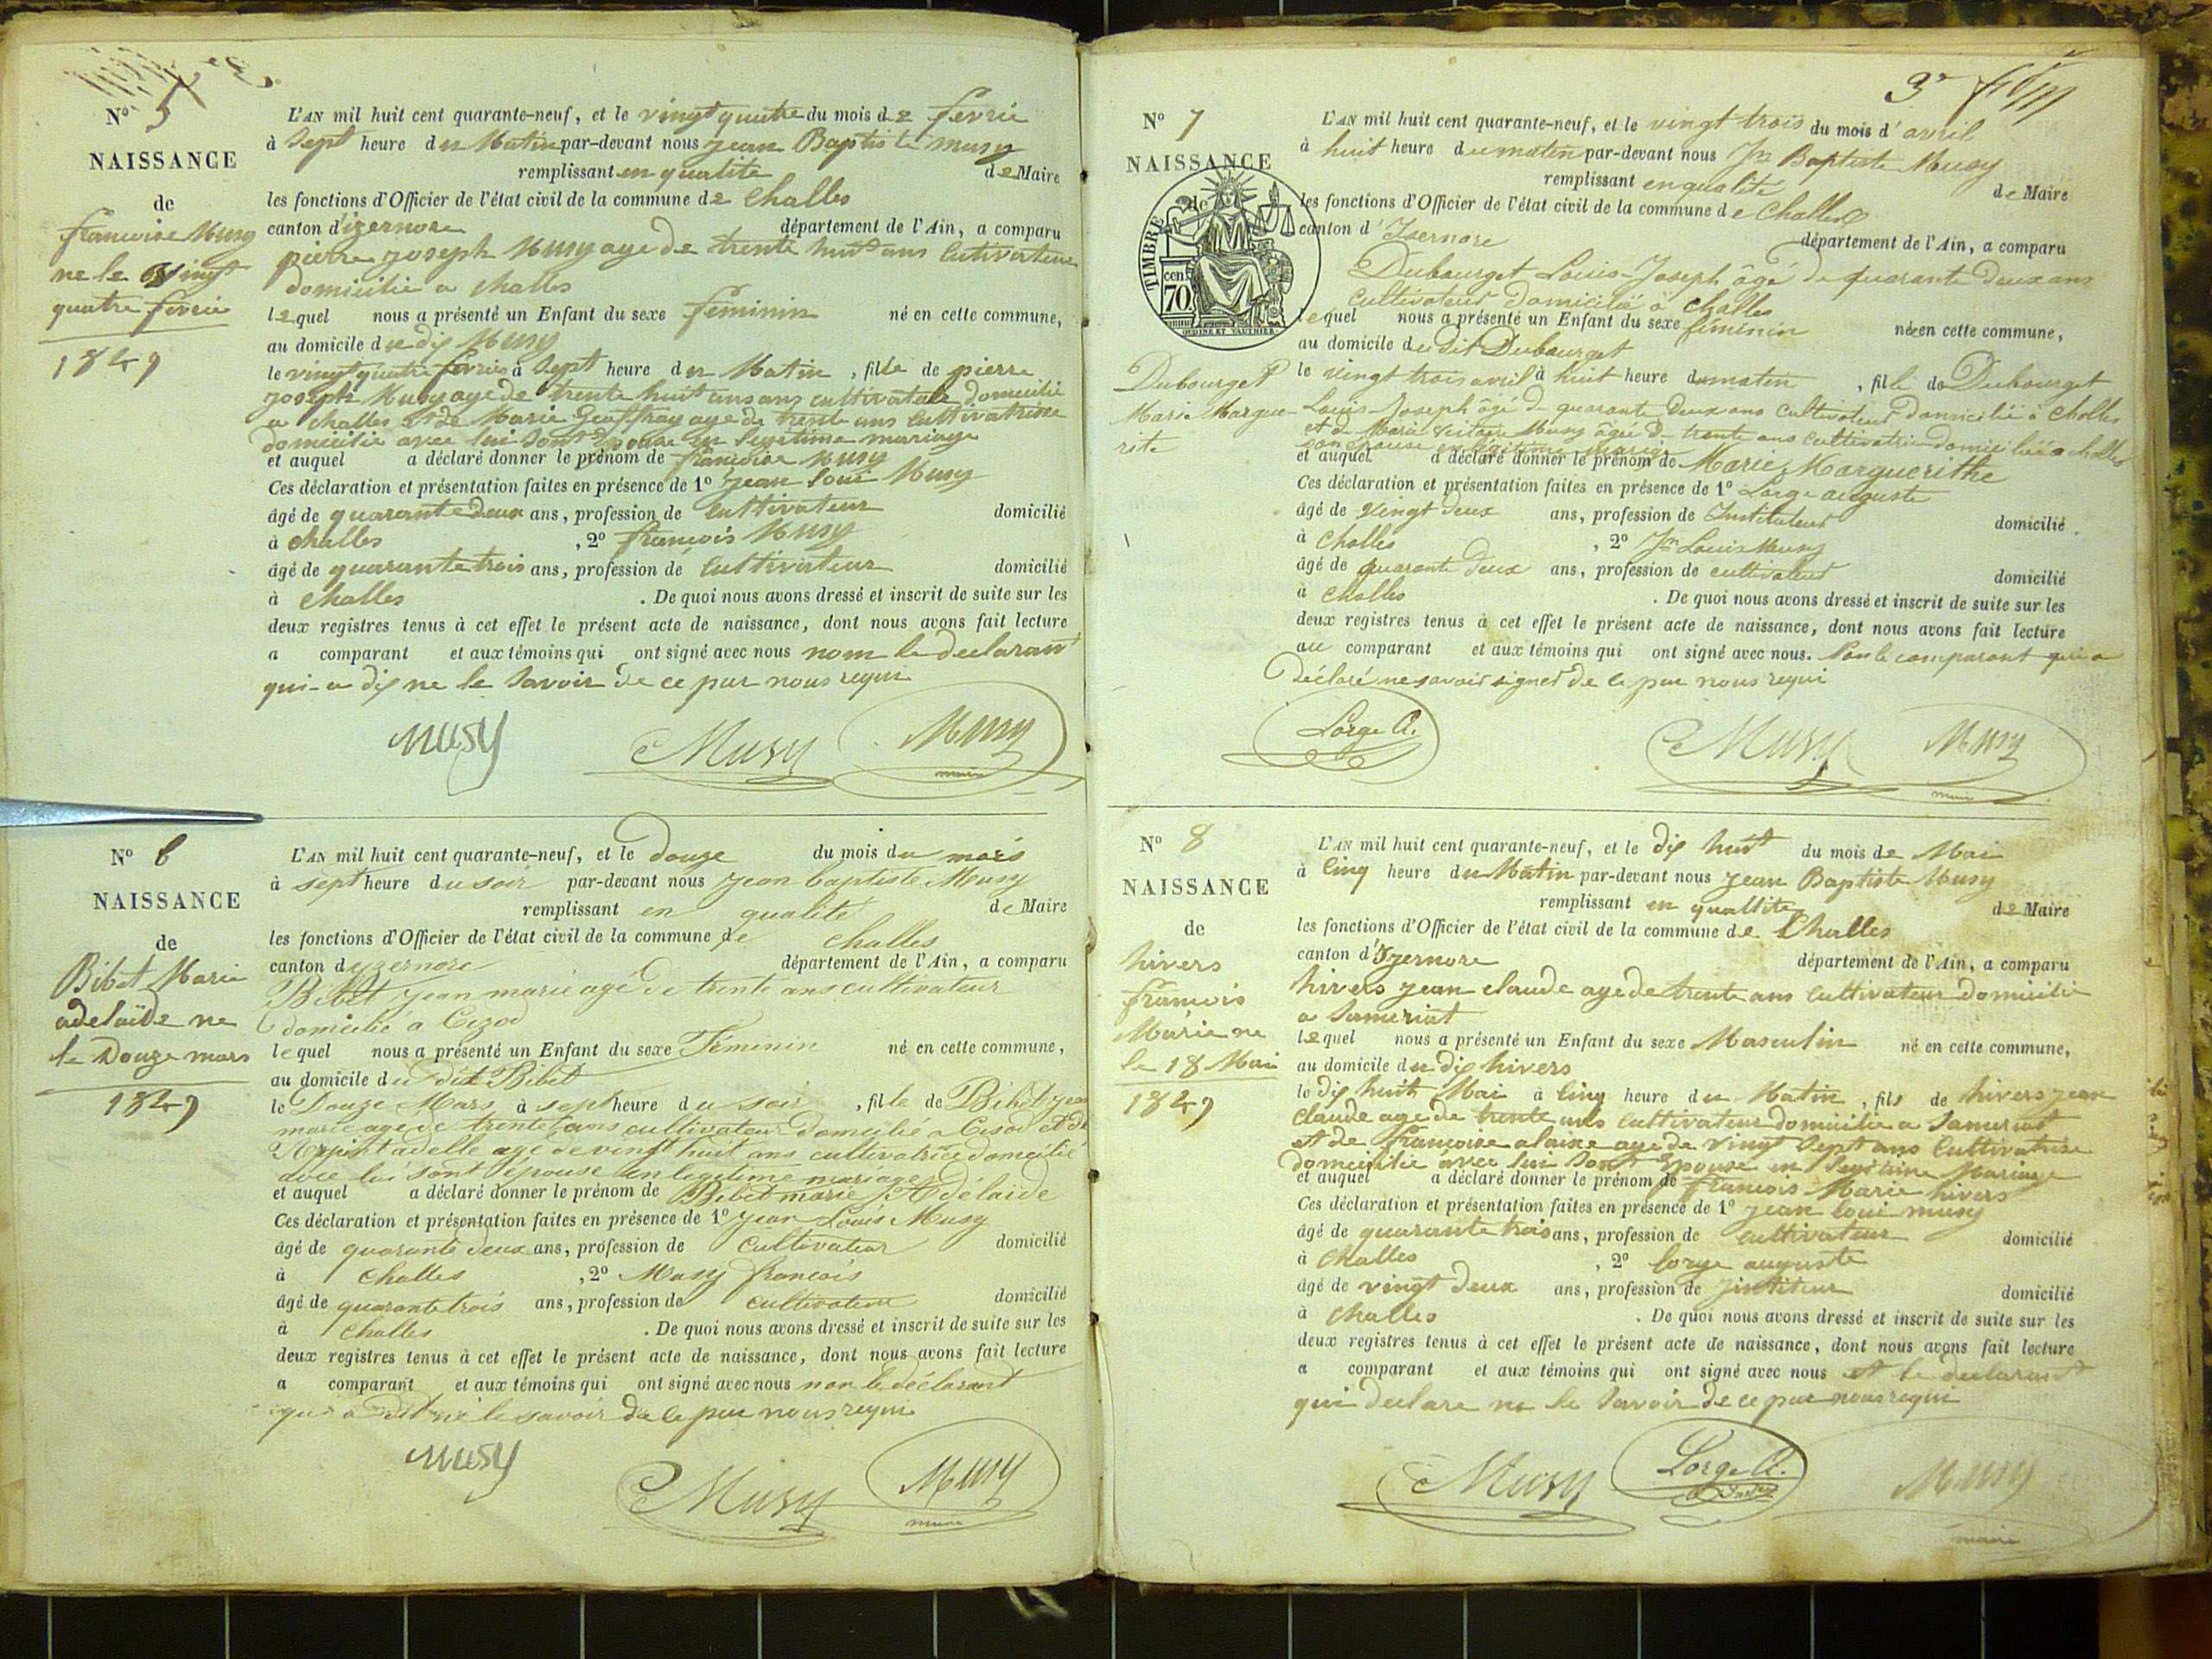 N° 5
NAISSANCE
de
francoise Musy
ne le vingt
quatre fevrie
1849
L'AN mil huit cent quarante-neuf, et le vingt quatre du mois de fevrie
à sept heure du Matin par-devant nous jean Baptiste musy
remplissant en qualite de Maire
les fonctions d'Officier de l'état civil de la commune de challes
canton d'izernore département de l'Ain, a comparu
pierre joseph Musy age de trente huit ans Cultivateur
domicilie a challes
lequel nous a présenté un Enfant du sexe feminin né en cette commune,
au domicile du dis Musy
le vingt quatre fevrie à sept heure du Matin, fille de pierre
joseph Musy age de trente huit ans cultivateur domicilie
a challes et de Marie age de trente ans Cultivatrise
domicilie avec lui sont Epouse en legitime mariage
et auquel a déclaré donner le prénom de francoise Musy
Ces déclaration et présentation faites en présence de 1° jean loui Musy
âgé de quarante deux ans, profession de Cultivateur domicilié
à challes, 2° francois Musy
âgé de quarante trois ans, profession de Cultivateur domicilié
à challes. De quoi nous avons dressé et inscrit de suite sur les
deux registres tenus à cet effet le présent acte de naissance, dont nous avons fait lecture
a comparant et aux témoins qui ont signé avec nous nom le declarant
qui a dis ne le savoir de ce par nous requi
Musy Musy Musy
maire
N° 6
NAISSANCE
de
Bibet Marie
adelaïde ne
le Douze mars
1849
L'AN mil huit cent quarante-neuf, et le douze du mois du mars
à sept heure du soir par-devant nous jean baptiste Musy
remplissant en qualité de Maire
les fonctions d'Officier de l'état civil de la commune de challes
canton dyzernore département de l'Ain, a comparu
Bibet jean marie agé de trente ans cultivateur
domicilié a Cizod
lequel nous a présenté un Enfant du sexe Féminin né en cette commune,
au domicile du dit Bibet
le Douze Mars à sept heure du soir, fille de Bibet jean
marie age de trente ans cultivateur domicilié a Cisod et de
adelle agé de vingt huit ans cultivatrice domicilié
avec lui sont épouse en legitime mariage
et auquel a déclaré donner le prénom de Bibet marie Adélaide
Ces déclaration et présentation faites en présence de 1° jean Louis Musy
âgé de quarante deux ans, profession de Cultivateur domicilié
à challes, 2° Musy francois
âgé de quarante trois ans, profession de cultivateur domicilié
à challes. De quoi nous avons dressé et inscrit de suite sur les
deux registres tenus à cet effet le présent acte de naissance, dont nous avons fait lecture
a comparant et aux témoins qui ont signé avec nous non le déclarant
qui a dit ne le savoir de ce par nous requi
Musy Musy Musy
maire
3e
N° 7
NAISSANCE
de
TIMBRE
70 cen
OUDINE ET VAUTHIER
Dubourget
Marie Margue-
rite
L'AN mil huit cent quarante-neuf, et le vingt trois du mois d'avril
à huit heure du matin par-devant nous Jn Baptiste Musy
remplissant en qualité de Maire
les fonctions d'Officier de l'état civil de la commune de Challes
canton d'Izernore département de l'Ain, a comparu
Dubourget Louis-Joseph âgé de quarante deux ans
cultivateur domicilié à challes
lequel nous a présenté un Enfant du sexe féminin née en cette commune,
au domicile du dit Dubourget
le vingt trois avril à huit heure du matin, fille de Dubourget
Louis-Joseph âgé de quarante deux ans cultivateur domicilié à challes
et de Marie Musy âgée de trente ans cultivatrice domiciliée à challes
son épouse en légitime mariage
et auquel a déclaré donner le prénom de Marie Marguerithe
Ces déclaration et présentation faites en présence de 1° Lorge auguste
âgé de vingt deux ans, profession de Instituteur domicilié
à Challes, 2° Jn Louis Musy
âgé de quarante deux ans, profession de cultivateur domicilié
à Challes. De quoi nous avons dressé et inscrit de suite sur les
deux registres tenus à cet effet le présent acte de naissance, dont nous avons fait lecture
au comparant et aux témoins qui ont signé avec nous. Non le comparant qui a
déclaré ne savoir signer de ce par nous requi
Lorge A. Musy Musy
maire
N° 8
NAISSANCE
de
hivers
francois
Marie ne
le 18 Mai
1849
L'AN mil huit cent quarante-neuf, et le dis huit du mois de Mai
à Cinq heure du Matin par-devant nous jean Baptiste Musy
remplissant en quallite de Maire
les fonctions d'Officier de l'état civil de la commune de Challes
canton d'Izernore département de l'Ain, a comparu
hivers jean claude age de trente ans Cultivateur domicilie
a Sameriat
lequel nous a présenté un Enfant du sexe Masculin né en cette commune,
au domicile du dis hivers
le dis huit Mai à Cinq heure du Matin, fils de hivers jean
claude age de trente ans cultivateur domicilie a Sameriat
et de francoise alaine age de vingt sept ans Cultivatrise
domicilie avec lui sont Epouse en legitime Mariage
et auquel a déclaré donner le prénom de francois Marie hivers
Ces déclaration et présentation faites en présence de 1° jean loui musy
âgé de quarante trois ans, profession de cultivateur domicilié
à Challes, 2° lorge auguste
âgé de vingt deux ans, profession de domicilié
à challes. De quoi nous avons dressé et inscrit de suite sur les
deux registres tenus à cet effet le présent acte de naissance, dont nous avons fait lecture
a comparant et aux témoins qui ont signé avec nous et le declarant
qui declare ne le savoir de ce par nous requi
Musy Lorge A. Musy
maire